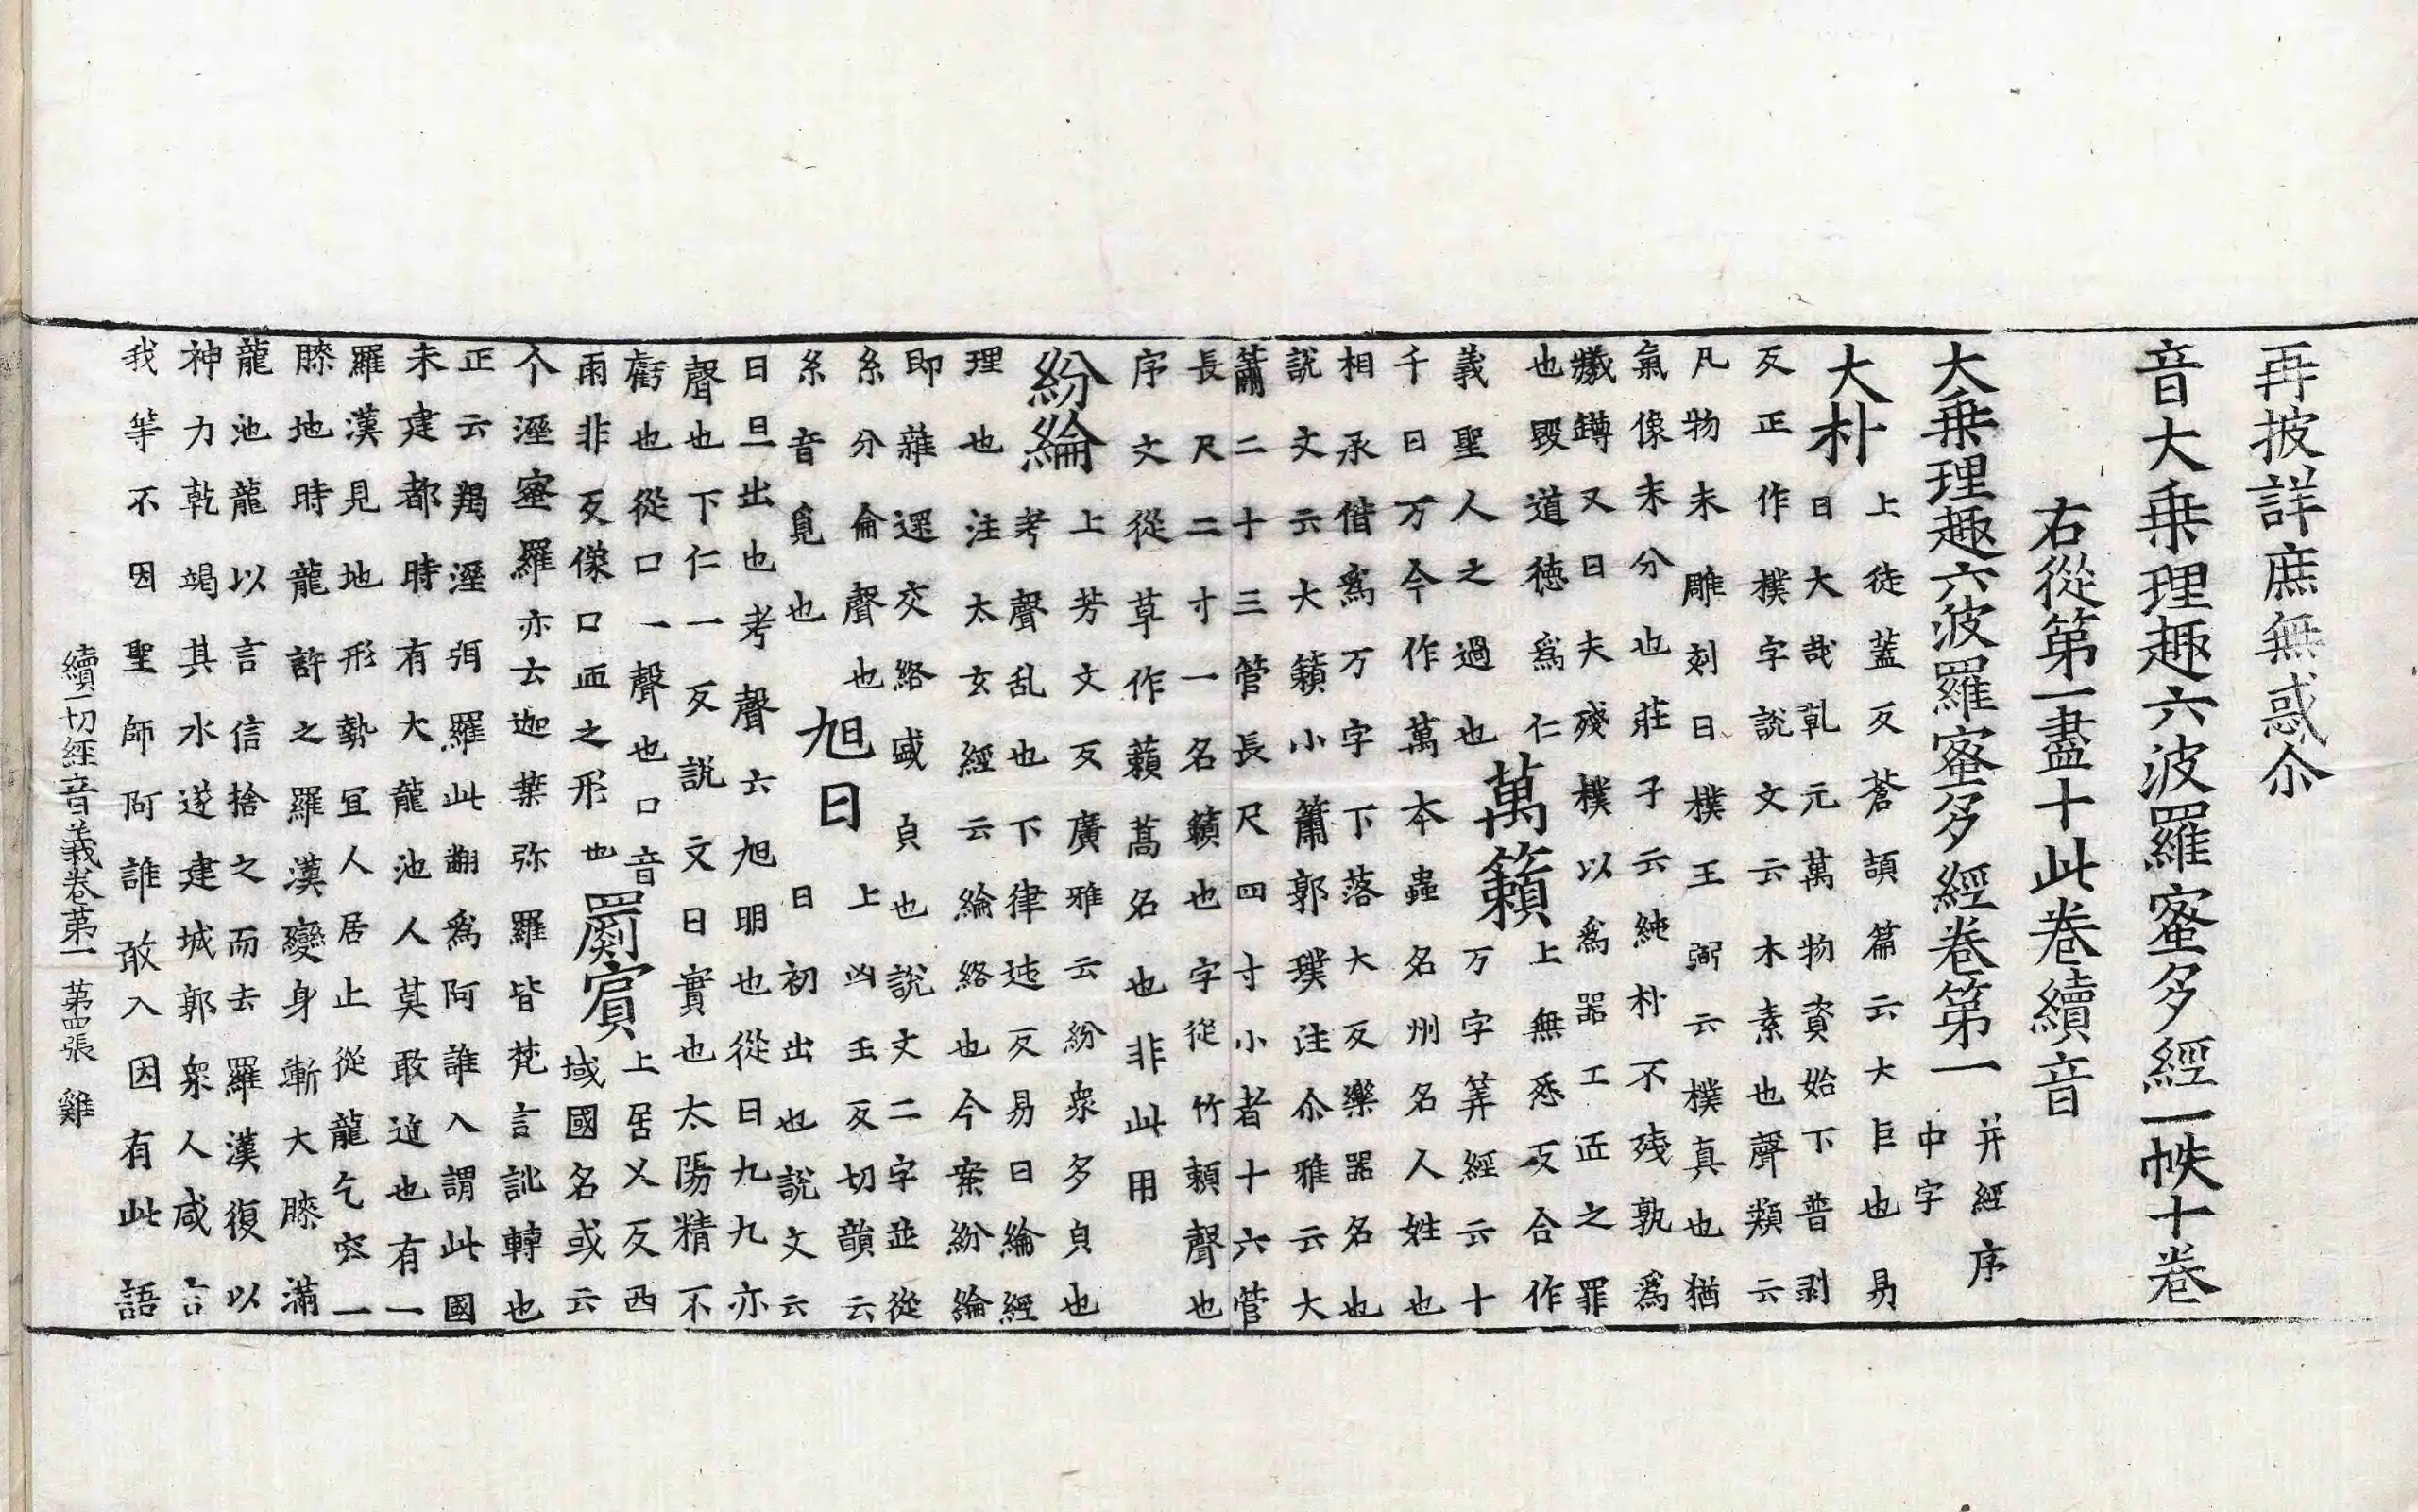 再披詳庶無惑尒
音大乗理趣六波羅蜜多經一帙十卷
右從第一盡十此卷續音
大乗理趣六波羅蜜多經卷第一
并經序
中字
大朴
上徒蓋反蒼頡篇云大巨也易
曰大哉乹元萬物資始下普剥
反正作樸字說文云木素也聲類云
凡物未雕刻曰樸王弼云樸真也猶
氣像未分也莊子云純朴不残孰為
犧罇又曰夫殘樸以為器工匠之罪
也毀道徳為仁
義聖人之過也
萬籟
上無悉反合作
万字筭經云十
千曰万今作萬本蟲名州名人姓也
相承借為万字下落大反樂器名也
說文云大籟小簫郭璞注尒雅云大
簫二十三管長尺四寸小者十六管
長尺二寸一名籟也字從竹頼聲也
序文從草作藾蒿名也非此用
紛綸
上芳文反廣雅云紛衆多皃也
考聲乱也下律迍反易曰綸經
理也注太玄經云綸絡也今案紛綸
即雜遝交絡盛皃也說文二字並從
糸分侖聲也
糸音覓也
上凶玉反切韻云
日初出也說文云
旭日
日旦出也考聲云旭明也從日九九亦
聲也下仁一反說文曰實也太陽精不
虧也從口一聲也口音
雨非反像口帀之形也
罽賓
上居乂反西
域國名或云
个溼蜜羅亦云迦葉弥羅皆梵言訛轉也
正云羯溼弭羅此翻為阿誰入謂此國
未建都時有大龍池人莫敢近也有一
羅漢見地形勢宜人居止從龍乞容一
膝地時龍許之羅漢變身漸大膝滿
龍池龍以言信捨之而去羅漢復以
神力乾竭其水遂建城郭衆人咸言
我等不因聖師阿誰敢入因有此語
續一切經音義卷第一 第四張 雞